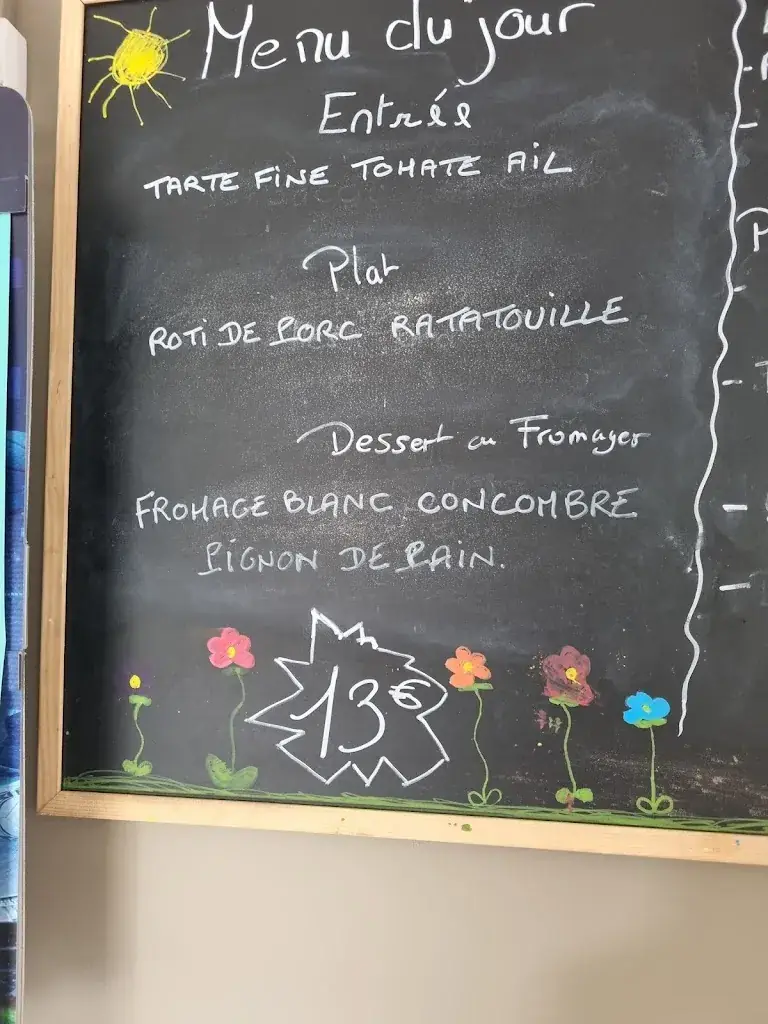 Menu du jour
Entrée
TARTE FINE TOMATE AIL
Plat
ROTI DE PORC RATATOUILLE
Dessert ou Fromages
FROMAGE BLANC CONCOMBRE
PIGNON DE PAIN.
13€